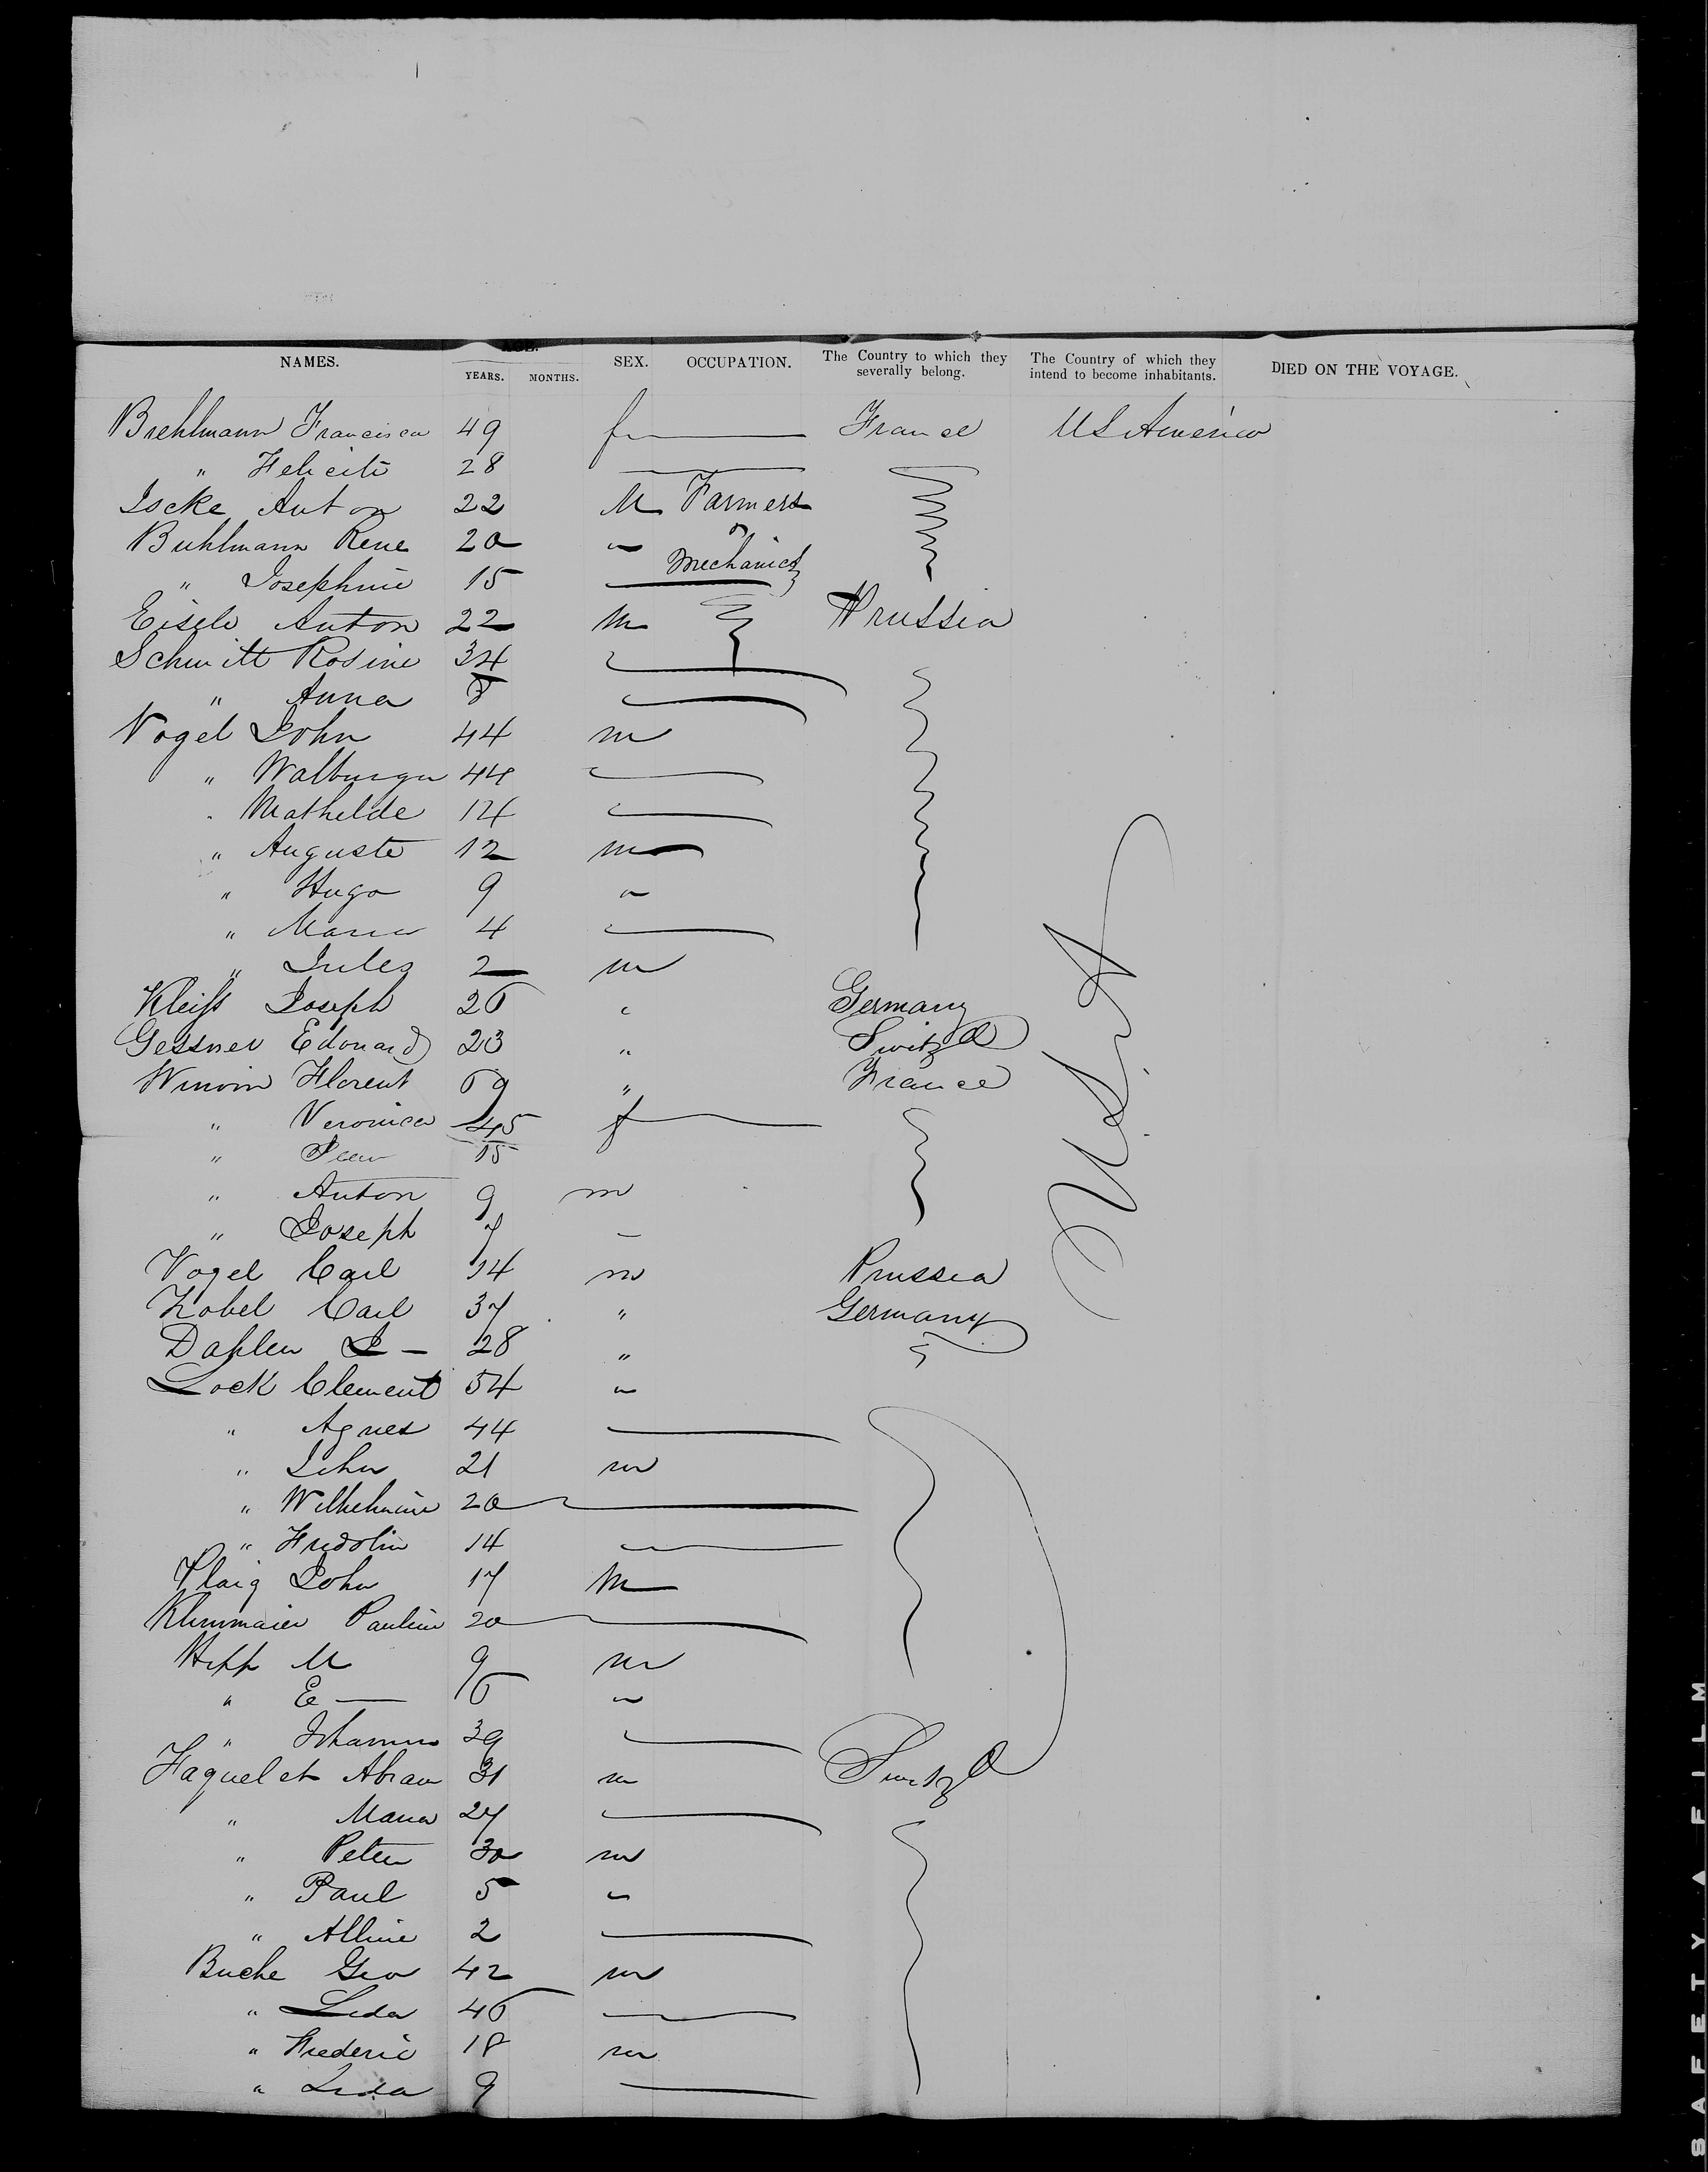 AGE.
NAMES. YEARS. MONTHS. SEX. OCCUPATION. The Country to which they severally belong. The Country of which they intend to become inhabitants. DIED ON THE VOYAGE.
Buehlmann Francisca 49 f France US America
" Felicite 28
Iscke Anton 22 M Farmers
Buhlmann Rene 20 " or mechanics
" Josephine 15
Eisele Anton 22 m Prussia
Schmitt Rosine 34
" Anna 8
Vogel John 44 m
" Walburga 44
" Mathilde 14
" Auguste 12 m
" Hugo 9 "
" Maria 4
" Jules 2 m
Kleiß Joseph 26 " Germany
Gessner Edouard 23 " Switzd
Florent 69 " France
" Veronica 45 f
" 15
" Anton 9 m
" Joseph 7 "
U.S.A
Vogel Carl 14 m Prussia
Zobel Carl 37 " Germany
Daplen J - 28 "
Lock Clement 54 "
" Agnes 44
" John 21 m
" Wilhelmine 20
" Fridolin 14
Plaig John 17 m
Klummaier Pauline 20
Hipp M 9 m
" E 6 "
" Johanna 39
Faquelet Abram 31 m Switzd
" Maria 27
" Peter 30 m
" Paul 5 "
" Alline 2
Buche Geo 42 m
" Lida 46
" Frederic 18 m
" Lida 9
SAFETY ▲ FILM